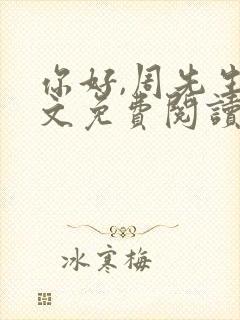 你好,周先生
文免費閱讀
冰寒梅